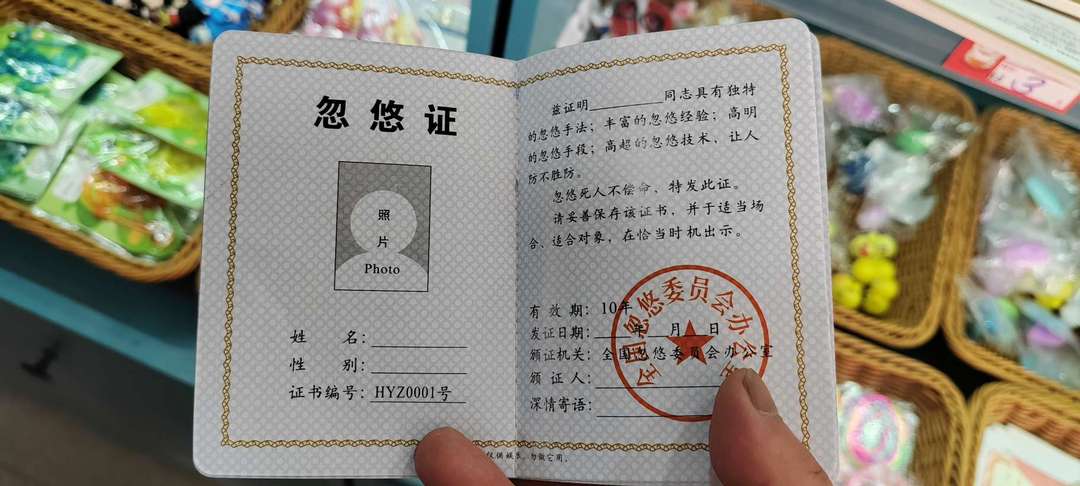 忽悠证
照
片
Photo
姓 名:
性 别:
证书编号: HYZ0001号
兹证明________同志具有独特
的忽悠手法；丰富的忽悠经验；高明
的忽悠手段；高超的忽悠技术、让人
防不胜防。
忽悠死人不偿命、特发此证。
请妥善保存该证书，并于适当场
合、适合对象，在恰当时机出示。
有 效 期: 10年
发证日期: 年 月 日
颁证机关: 全国忽悠委员会办公室
颁 证 人:
深情寄语:
全国忽悠委员会办公室
仅供娱乐，勿做它用。
3